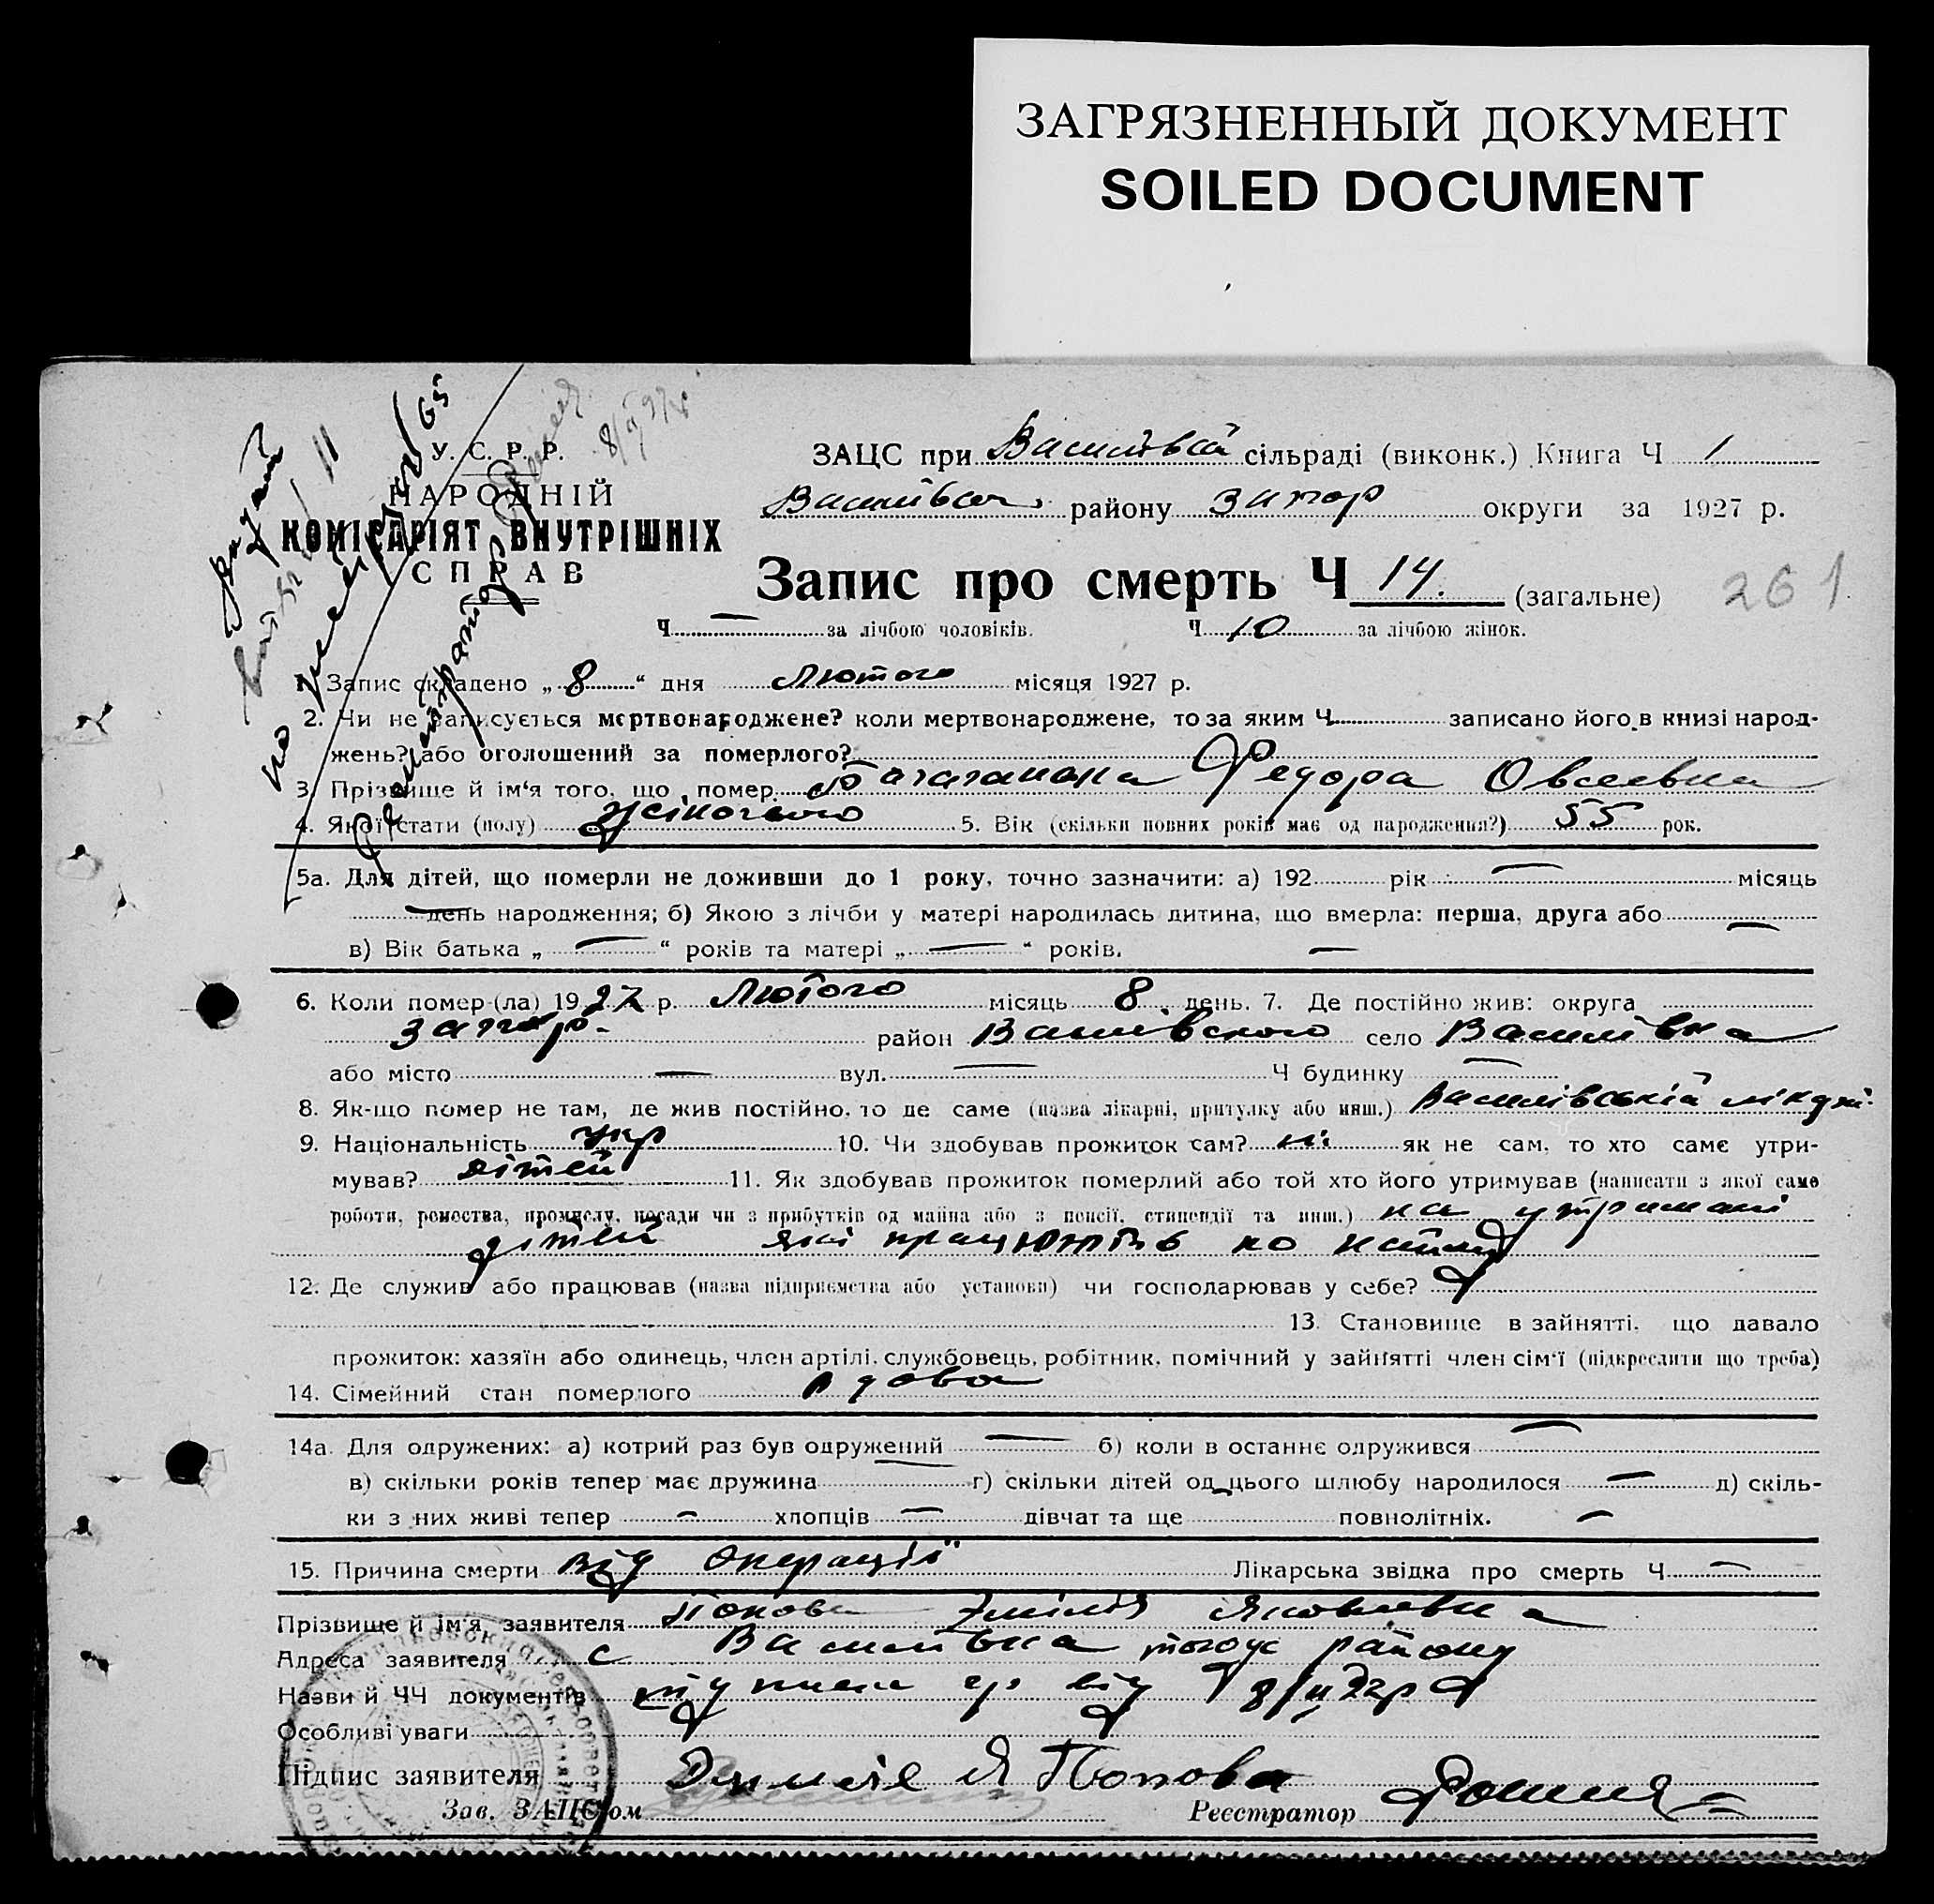 ЗАГРЯЗНЕННЫЙ ДОКУМЕНТ
SOILED DOCUMENT
У. С. Р. Р.
НАРОДНІЙ
КОМІСАРІЯТ ВНУТРІШНІХ
СПРАВ
ЗАЦС при сільраді (виконк.) Книга Ч 1
району Запор округи за 1927 р.
Запис про смерть Ч 14. (загальне)
261
Ч — за лічбою чоловіків. Ч 10 за лічбою жінок.
1. Запис складено „ 8 “ дня Лютого місяця 1927 р.
2. Чи не записується мертвонароджене? коли мертвонароджене, то за яким Ч записано його в книзі народ-
жень? або оголошений за померлого?
3. Прізвище й ім‘я того, що помер Федора Овсеевна
4. Якої стати (полу) жіночого 5. Вік (скільки повних років має од народження?) 55 рок.
5а. Для дітей, що померли не доживши до 1 року, точно зазначити: а) 192 рік — місяць
день народження; б) Якою з лічби у матері народилась дитина, що вмерла: перша, друга або —
в) Вік батька „ — “ років та матері „ — “ років. —
6. Коли помер (ла) 1927 р. Лютого місяць 8 день. 7. Де постійно жив: округа
Запор. район Василівского село Василівка
або місто — вул. — Ч будинку —
8. Як-що помер не там, де жив постійно, то де саме (назва лікарні, притулку або инш.) Василівській
9. Національність укр 10. Чи здобував прожиток сам? ні як не сам, то хто саме утри-
мував? дітей 11. Як здобував прожиток померлий або той хто його утримував (написати з якої саме
роботи, ремества, промислу, посади чи з прибутків од майна або з пенсії, стипендії та инш.) на утримані
дітей які працюють по
12. Де служив або працював (назва підприємства або установи) чи господарював у себе?
13. Становище в зайнятті, що давало
прожиток: хазяїн або одинець, член артілі, службовець, робітник, помічний у зайнятті член сім‘ї (підкреслити що треба)
14. Сімейний стан померлого вдова
14а. Для одружених: а) котрий раз був одружений — б) коли в останнє одружився —
в) скільки років тепер має дружина — г) скільки дітей од цього шлюбу народилося — д) скіль-
ки з них живі тепер — хлопців — дівчат та ще повнолітніх. —
15. Причина смерти від операції Лікарська звідка про смерть Ч —
Прізвище й ім‘я заявителя Попова Эмілія Яковлевна
Адреса заявителя с Василівка того ж району
Назви й ЧЧ документів від 8/II 27р
Особливі уваги
Підпис заявителя Я Попова
Зав. ЗАЦСом Реєстратор